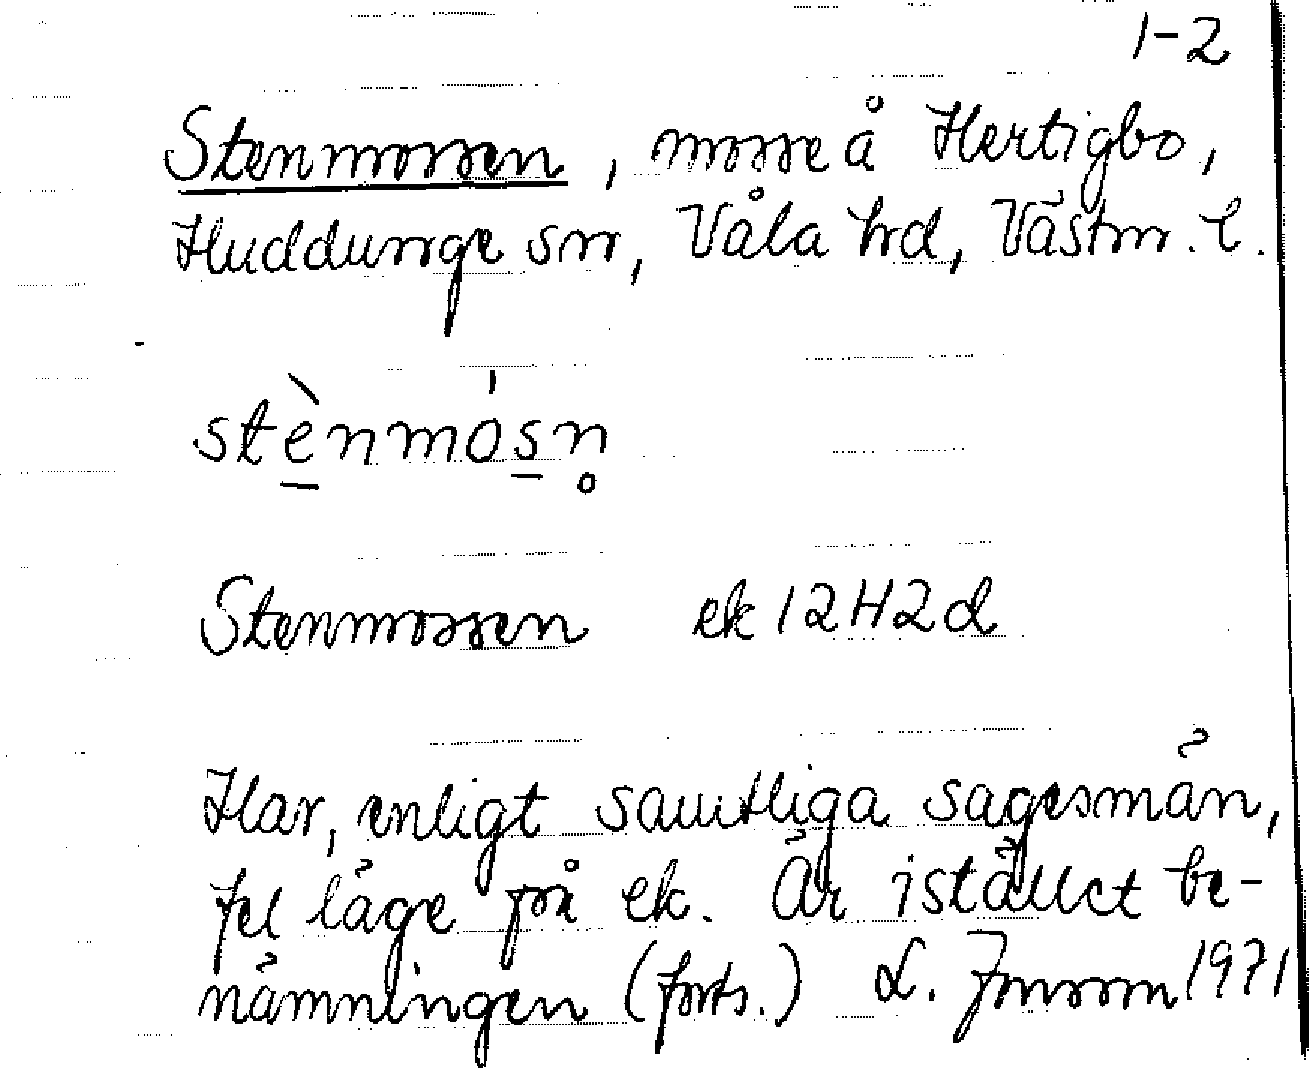 1-2
Stenmossen, mosse å Hertigbo,
Huddunge sn, Våla hd, Västm. l.
stènmósn̥
Stenmossen ek 12H2d
Har, enligt samtliga sagesmän,
fel läge på ek. Är istället be-
nämningen (forts.) L. Jonsson 1971